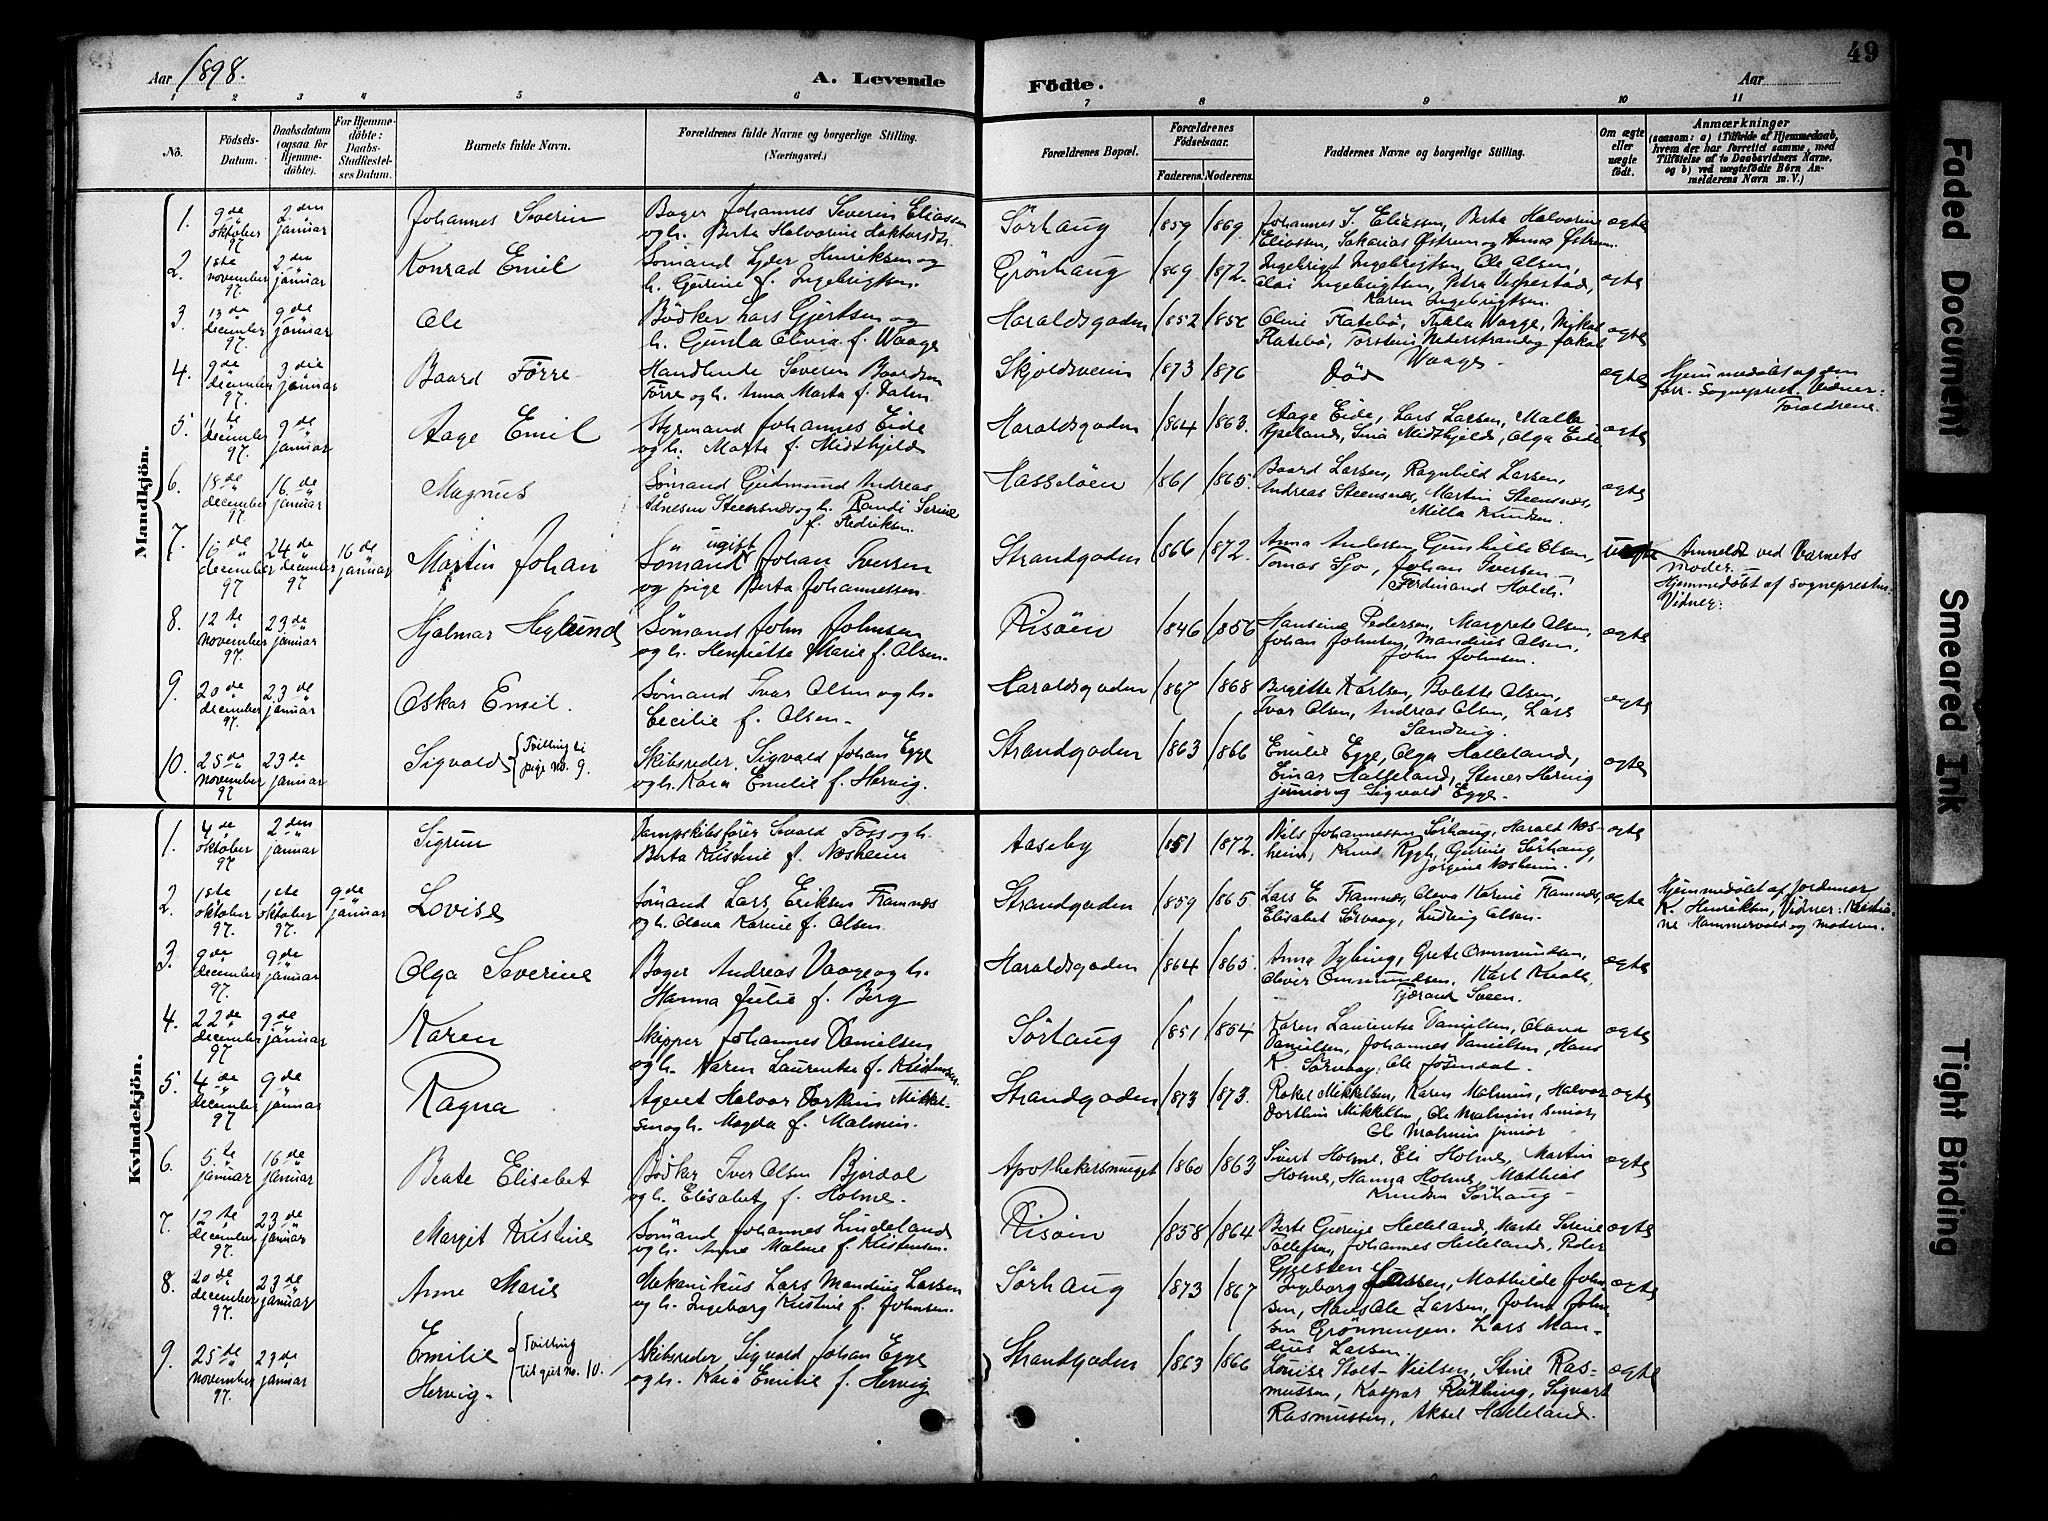 Aar 1898.
A. Levende
Födte.
Aar
49
1 2 3 4 5 6 7 8 9 10 11
No.
Födsels-
Datum.
Daabsdatum
(ogsaa for
Hjemme-
döbte).
For Hjemme-
döbte:
Daabs-
Stadfæstel-
ses Datum.
Barnets fulde Navn.
Forældrenes fulde Navne og borgerlige Stilling.
(Næringsvei.)
Forældrenes Bopæl.
Forældrenes
Födselsaar.
Faderens. Moderens.
Faddernes Navne og borgerlige Stilling.
Om ægte
eller
uægte
födt.
Anmærkninger
(saasom: a) i Tilfælde af Hjemmedaab,
hvem der har forrettet samme, med
Tilföielse af to Daabsvidners Navne,
og b) ved uægtefödte Börn An-
melderens Navn m. V.)
Mandkjön.
1. 9de oktober 97. 2den januar
Johannes Severin
Bager Johannes Severin Eliassen
og h. Berta Halvorine Haktorsdtr.
Sörhaug 1859 1869.
Johannes S. Eliassen, Berta Halvorine
Eliassen, Sakarias Østrem og Anna Østrem.
ægte
2. 1ste november 97. 2den januar
Konrad Emil
Sömand Lyder Henriksen og
h. Gurine f. Ingebrigtsen.
Grönhaug 1869 1872.
Ingebrigt Ingebrigtsen, Ole Olsen,
Olai Ingebrigtsen, Petra Vespestad,
Karen Ingebrigtsen.
ægte
3. 13de december 97. 9de januar
Ole
Bödker Lars Gjertsen og
h. Gurla Olivia f. Waage
Haraldsgaden 1852 1856
Oline Flatebö, Thala Waage, Mikal
Flatebö, Torstein Nederstrand og Jakob
Waage.
ægte
4. 9de december 97. 3die januar
Baard Förre
Handlende Severin Baardsen
Förre og h. Anna Marta f. Dalen.
Skjoldsveien 1873 1876
Död
ægte
Hjemmedöbt af den
forr. Sogneprest. Vidner:
Forældrene.
5. 11te december 97. 9de januar
Aage Emil
Styrmand Johannes Eide
og h. Marta f. Midthjeld
Haraldsgaden 1864 1863.
Aage Eide, Lars Larsen, Malla
Apeland, Sina Midthjeld, Olga Eide.
ægte
6. 18de december 97. 16de januar
Magnus
Sömand Gudmund Andreas
Aanesen Steensnæs og h. Randi Serine
f. Fredriksen.
Hasselöen 1861 1865.
Baard Larsen, Ragnhild Larsen,
Andreas Steensnæs, Martin Steensnæs,
Milla Knudsen.
ægte
7. 16de december 97. 24de december 97 16de januar
Martin Johan
ugift
Sömand Johan Iversen
og pige Berta Johannessen.
Strandgaden 1866 1872.
Anna Andersen, Gunhille Olsen,
Tomas Sjo, Johan Iversen,
Ferdinand Holch.
uægte
Anmeldt ved Barnets
moder.
Hjemmedöbt af sognepresten.
Vidner:
8. 12te november 97. 23de januar
Hjalmar Heglund
Sömand John Johnsen
og h. Henriette Marie f. Olsen.
Risöen 1846 1856
Hansine Pedersen, Margrete Olsen,
Johan Johnsen, Mandius Olsen,
John Johnsen.
ægte
9. 20de december 97. 23de januar
Oskar Emil.
Sömand Ivar Olsen og h.
Cecilie f. Olsen.
Haraldsgaden 1867 1868
Birgitte Karlsen, Bolette Olsen,
Ivar Olsen, Andreas Olsen, Lars
Sandvig.
ægte
10. 25de november 97 23de januar
Sigvald { Tvilling til pige no. 9.
Skibsreder Sigvald Johan Egge
og h. Kaia Emilie f. Hervig.
Strandgaden 1863 1866
Emilie Egge, Olga Halleland,
Einar Halleland, Stener Hervig
junior og Sigvald Egge.
ægte
Kvindekjön.
1. 4de oktober 97. 2den januar
Sigrun
Dampskibsförer Sevald Foss og h.
Berta Kristine f. Næsheim
Aaseby 1851 1872.
Nils Johannessen Sörhaug, Harald Næs-
heim, Knud Rygh, Gurine Sörhaug,
Jörgine Næsheim.
ægte
2. 1ste oktober 97. 1ste oktober 97. 9de januar
Lovise
Sömand Lars Eriksen Framnæs
og h. Olava Karine f. Olsen.
Strandgaden 1859 1865.
Lars E. Framnæs, Olava Karine Framnæs,
Elisabet Sörvaag, Ludvig Olsen.
ægte
Hjemmedöbt af Jordemor
K. Henriksen, Vidner: Kristia-
ne Hammervold og moderen.
3. 9de december 97. 9de januar
Olga Severine
Bager Andreas Vaage og h.
Hanna Julie f. Berg
Haraldsgaden 1864 1865.
Anna Nybing, Grete Ommundsen,
Oliver Ommundsen, Karl Kvale,
Tjærand Sveen.
ægte
4. 22de december 97 9de januar
Karen
Skipper Johannes Danielsen
og h. Karen Laurentse f. Kristensen.
Sörhaug 1851 1854
Karen Laurentse Danielsen, Olava
Danielsen, Johannes Danielsen, Hans
K. Sörvaag, Ole Jösendal.
ægte
5. 4de december 97 9de januar
Ragna
Agent Halvor Dorthin Mikkel-
sen og h. Magda f. Malmin.
Strandgaden 1873 1873.
Rakel Mikkelsen, Karen Malmin, Halvor
Dorthin Mikkelsen, Ole Malmin senior,
Ole Malmin junior
ægte
6. 5te januar 16de januar
Beate Elisabet
Bödker Iver Olsen Bjordal
og h. Elisabet f. Holme.
Apothekersmuget 1860 1863
Sivert Holme, Eli Holme, Martin
Holme, Hanna Holme, Mathias
Knudsen Sörhaug
ægte
7. 12te december 97. 23de januar
Margit Kristine
Sömand Johannes Lindeland
og h. Anne Malene f. Kristensen.
Risöen 1858 1864
Berte Gurine Helleland, Marte Serine
Tollefsen, Johannes Helleland, Peder
Gjelsten.
ægte
8. 20de december 97. 23de januar
Anne Marie
Mekanikus Lars Mandius Larsen
og h. Ingeborg Kristine f. Johnsen.
Sörhaug 1873 1867
Ingeborg Larsen, Mathilde John-
sen, Hans Ole Larsen, John John-
sen Grönningen. Lars Man-
dius Larsen.
ægte
9. 25de november 97. 23de januar
Emilie Hervig. { Tvilling til gut no. 10.
Skibsreder Sigvald Johan Egge
og h. Kaia Emilie f. Hervig
Strandgaden 1863 1866
Louise Stolt-Nielsen, Stine Ras-
mussen, Kaspar Röthing, Sigvart
Rasmussen, Aksel Halleland.
ægte
Faded Document
Smeared Ink
Tight Binding